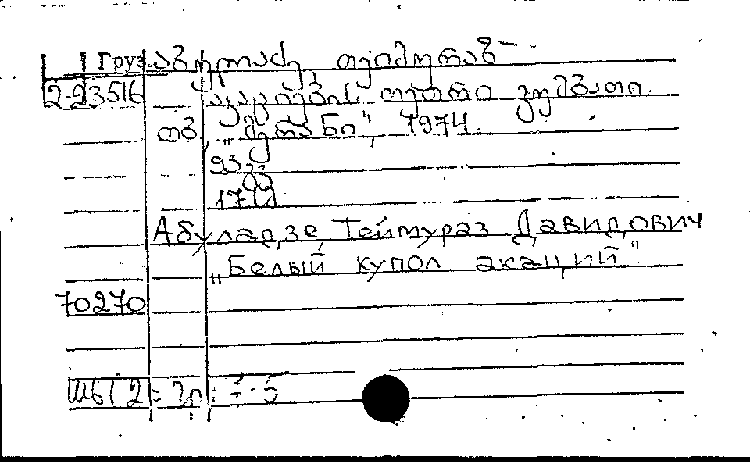 Груз. აბულაძე, თეიმურაზ
2-23516 აკაციების თეთრი გუმბათი.
თბ., „მერანი", 1974.
93
17
Абуладзе, Теймураз Давидович
„Белый купол акаций"
70270